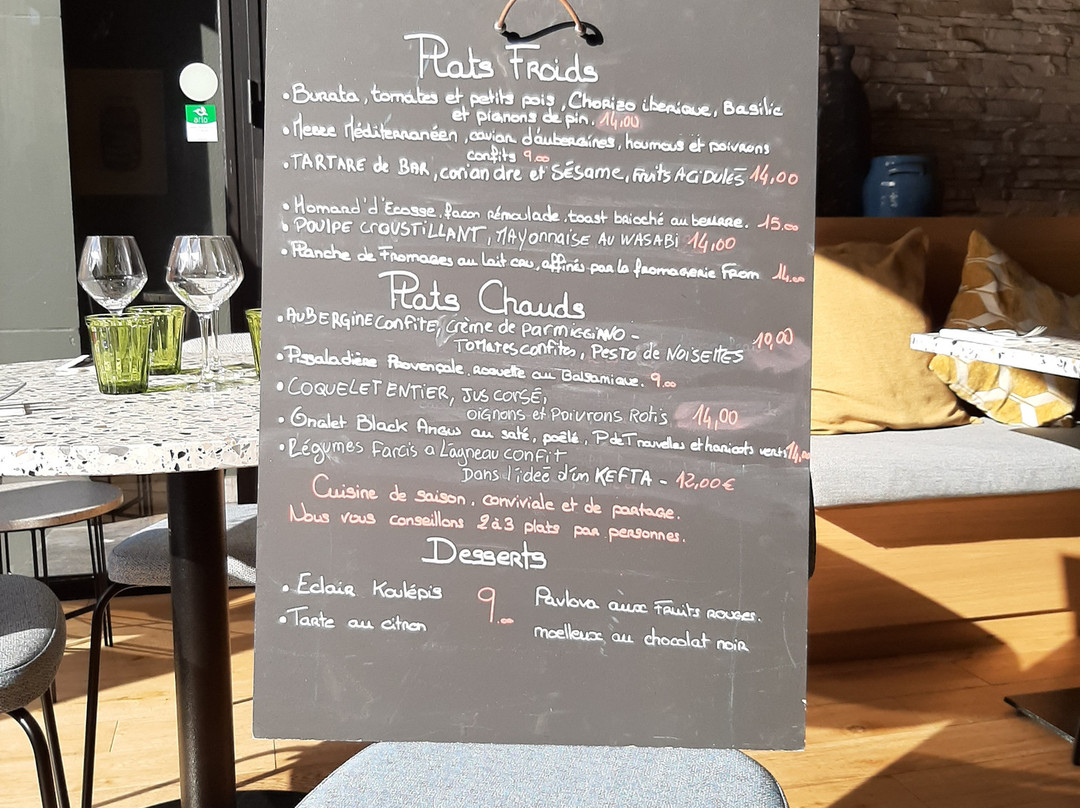 Plats Froids
• Burrata, tomates et petits pois, Chorizo iberique, Basilic
et pignons de pin. 14,00
• Mezze Méditerranéen, caviar d'aubergines, houmous et poivrons
confits 9.00
• TARTARE de BAR, coriandre et SÉSAME, FRUITS ACIDULÉS 14,00
• Homard d'Ecosse façon rémoulade. toast brioché au beurre. 15.00
• POULPE CROUSTILLANT, MAYonnaise AU WASABI 14,00
• Planche de Fromages au lait cru, affinés par la fromagerie From 14.00
Plats Chauds
• AUBERGINE CONFITE, crème de PARMIGGIANO -
TOMATES confites, PESTO de NOISETTES 10,00
• Pissaladière Provençale, roquette au Balsamique. 9.00
• COQUELET ENTIER, JUS CORSÉ,
oignons et Poivrons Rotis 14,00
• Onglet Black Angus au saté, poêlé, PdeT nouvelles et haricots verts 14,00
• Légumes Farcis a l'agneau confit
Dans l'ideé d'un KEFTA - 12,00€
Cuisine de saison, conviviale et de partage.
Nous vous conseillons 2 à 3 plats par personnes.
Desserts
• Eclair Koulépis 9.00 Pavlova aux Fruits rouges.
• Tarte au citron moelleux au chocolat noir